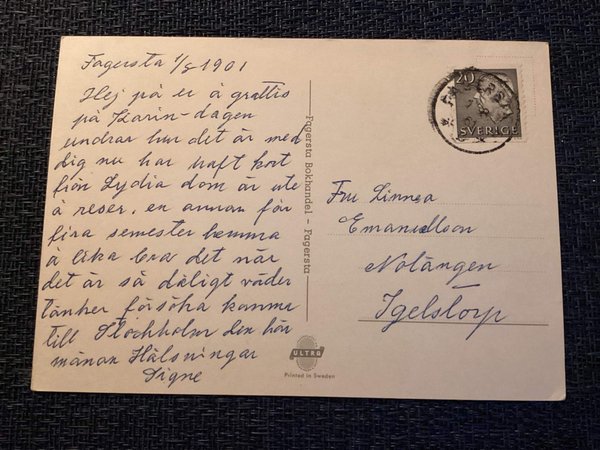 Fagersta 1/8 1901
Hej på er å grattis
på Karin-dagen
undrar hur det är med
dig nu har haft kort
från Lydia dom är ute
å reser, en annan får
fira semester hemma
å lika bra det när
det är så dåligt väder
tänker försöka komma
till Stockholm den här
månan Hälsningar
Signe
Fagersta Bokhandel - Fagersta
ULTRA
Printed in Sweden
20
SVERIGE
Fru Linnea
Emanuelson
Notängen
Igelstorp